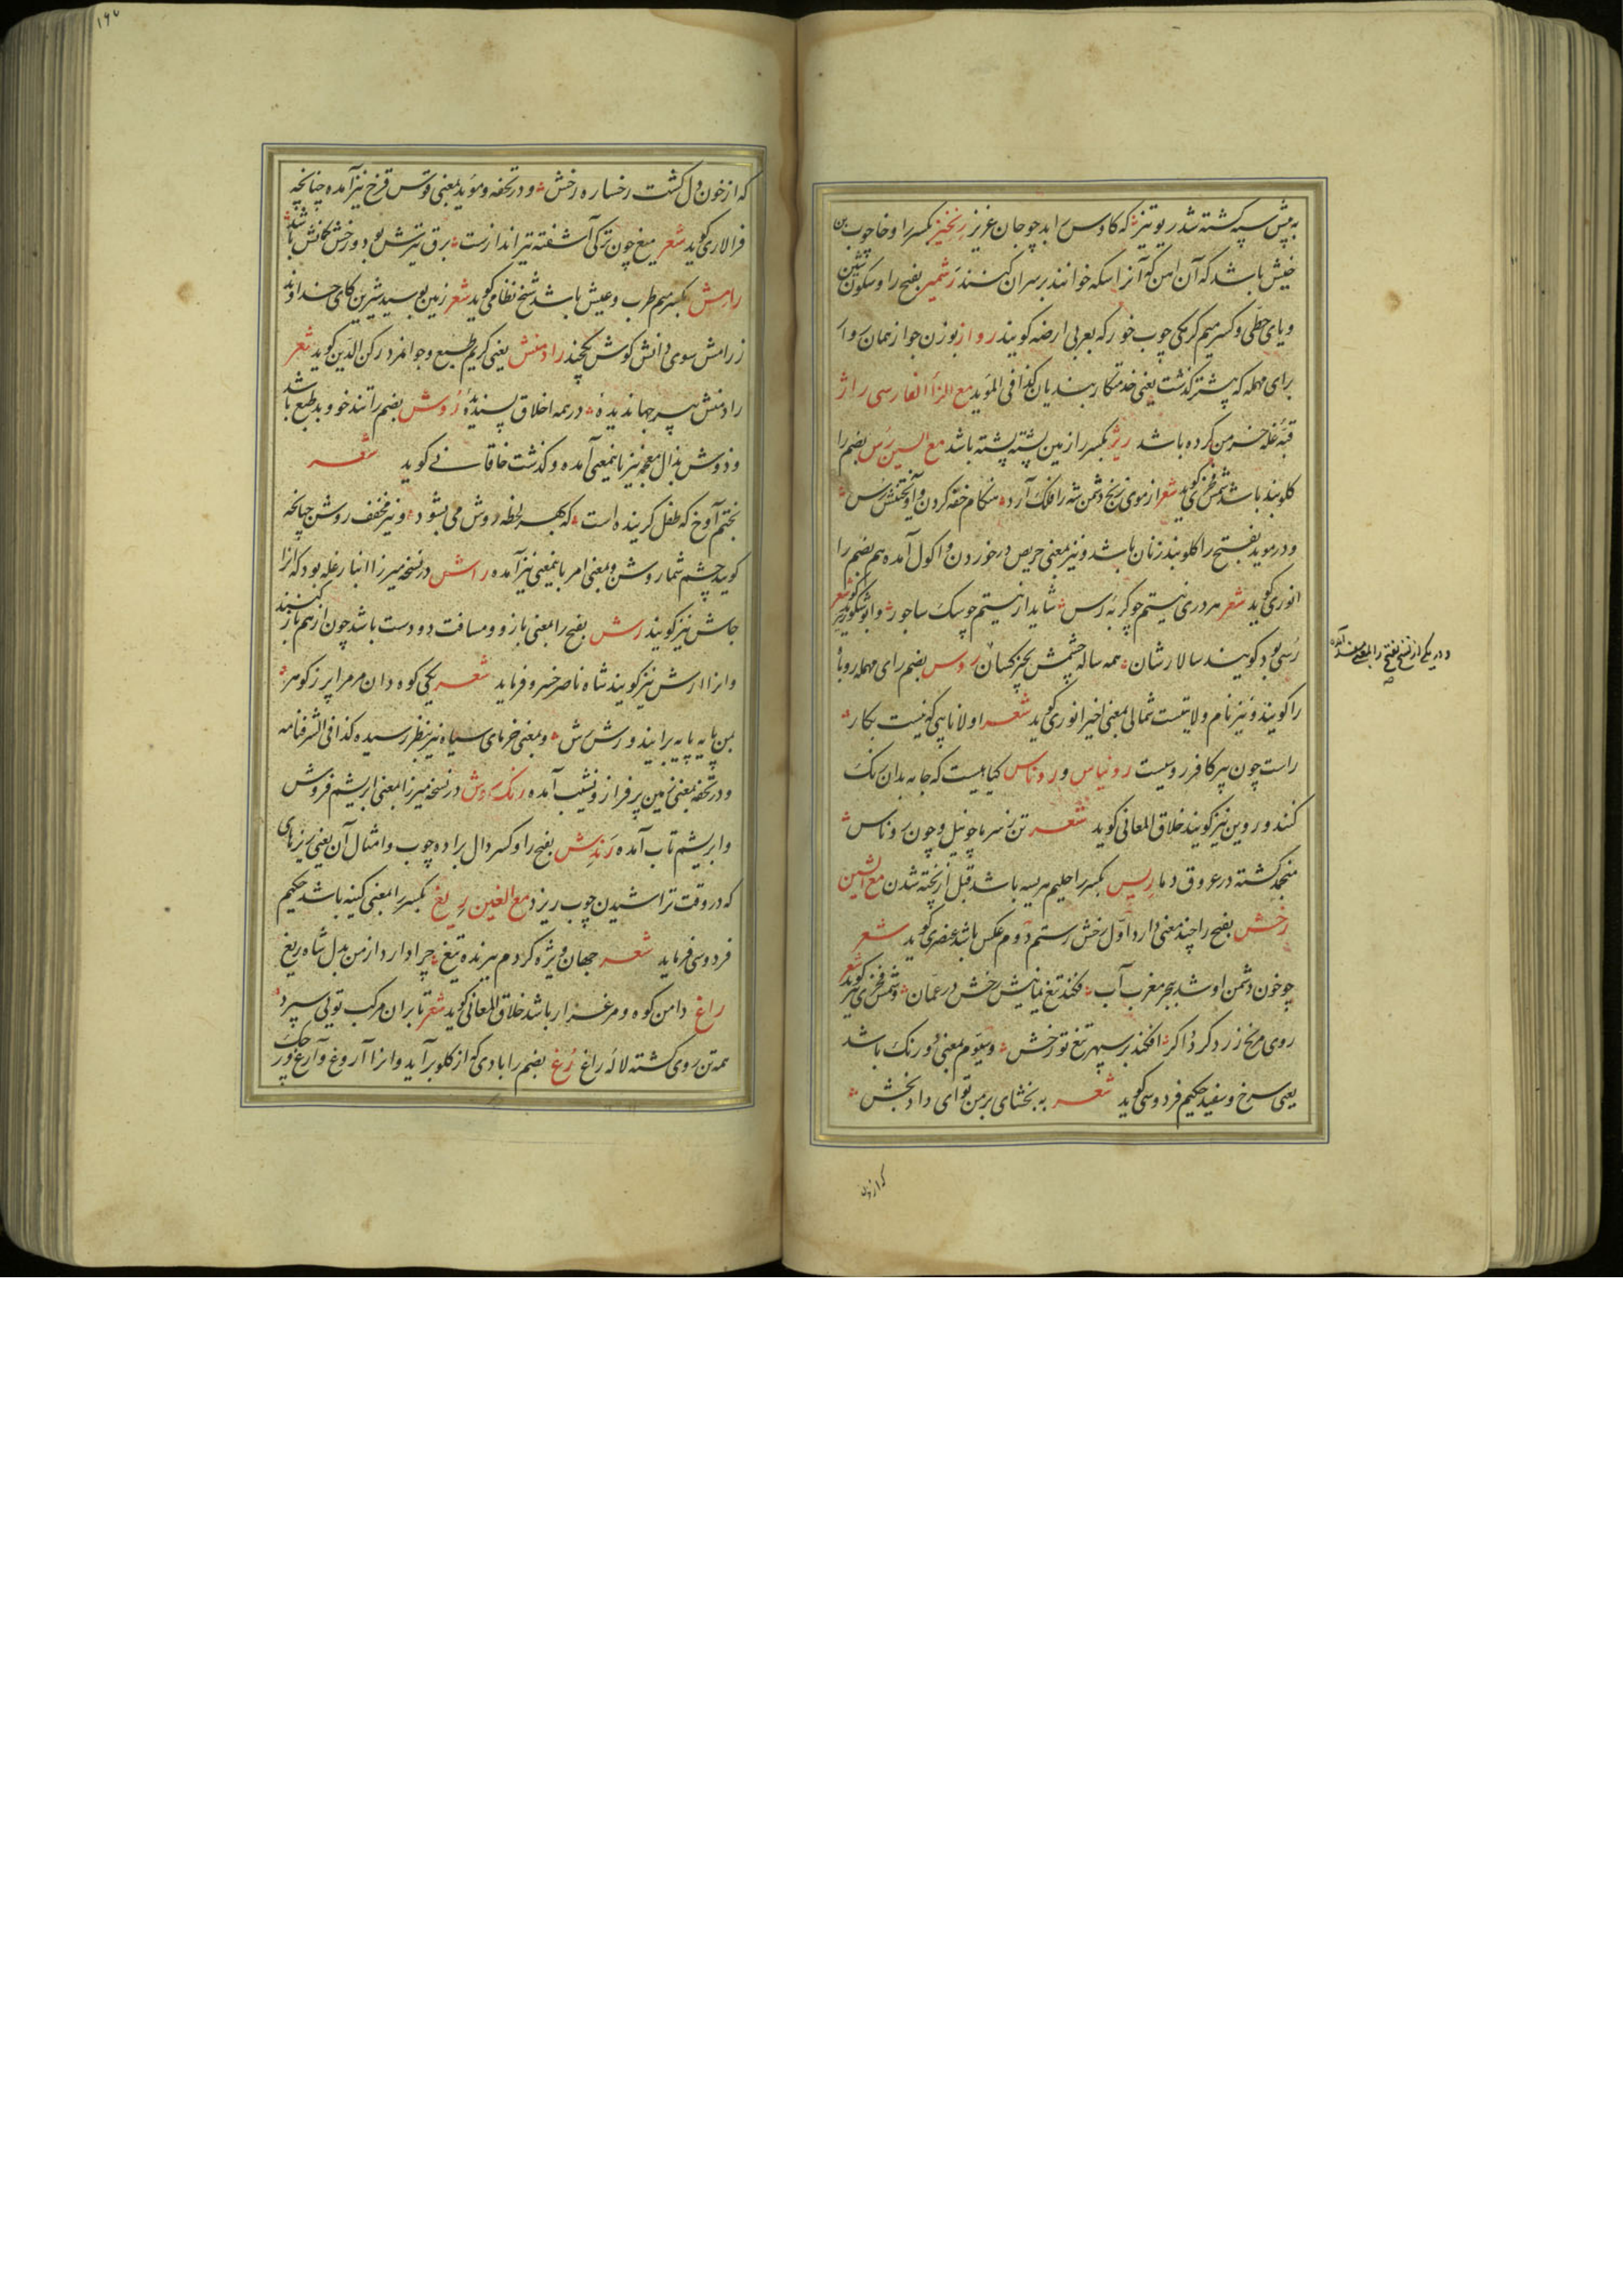 به پیش سپه کشته شد ریونیز که کاوس را بد چو جان عزیز رنخیز بکسر را و خا چوب بن
خیش باشد که آن آهن که آنرا سکه خوانند بر سر آن کنند رشمیز بفتح را و سکون شین
و یای حطی و کسر میم کرمکی چوب خور که بعربی ارضه کویند رواز بوزن جواز همان روار
برای مهمله که پیشتر کذشت یعنی خدمتکار بندیان کذا فی المؤید مع الزاء الفارسی راژ
قبهٔ غله خرمن کرده باشد ریژ بکسر را زمین پشته پشته باشد مع السین رس بضم را
کلوبند باشد شمس فخری کوید شعر از موی زنخ دشمن شه را فلک آرد هنکام خفه کردن و آونختنش رس
و در موید بفتح را کلوبند زنان باشد و نیز بمعنی حریص در خوردن و اکول آمده هم بضم را
انوری کوید شعر هر دری نیستم چو کربه رس شاید ار نیستم چو سک ساجور و ابو شکور نیز کوید شعر
رسی بود کویند سالارشان همه ساله چشمش بچیز کسان روس بضم رای مهمله روباه
را کویند و نیز نام ولایتیست شمالی بمعنی اخیر انوری کوید شعر اولا ناپی که نیست بکار
راست چون پیر کافر روسیست رونیاس و روناس کیاهیست که جامه بدان رنک
کنند و روین نیز کویند خلاق المعانی کوید شعر تن ز سرما چو نیل و چون روناس
منجمد کشته در عروق دما ریس بکسر را حلیم هریسه باشد قبل از پخته شدن مع الشین
رخش بفتح را چند معنی دارد اول رخش رستم دوم عکس باشد عنصری کوید شعر
چو خون دشمن او شد ببحر مغرب آب فکند تیغ یمانیش رخش در عمان و شمس فخری نیز کوید شعر
روی مریخ زرد کردد اکر افکند بر سپهر تیغ تو رخش و سیوم بمعنی دو رنک باشد
یعنی سرخ و سفید حکیم فردوسی کوید شعر به بخشای بر من تو ای داد بخش
که از خون
که از خون دل کشت رخساره رخش و در تحفه و موید بمعنی قوس قزح نیز آمده چنانچه
فرالاری کوید شعر میغ چون ترکی آشفته تیر اندازست برق تیرش بود و رخش کمانش باشد
رامش بکسر میم طرب و عیش باشد شیخ نظامی کوید شعر زمین بوسید شیرین کای خداوند
ز رامش سوی دانش کوش یکچند رادمنش یعنی کریم طبع و جوانمرد رکن الدین کوید شعر
رادمنش پیر جهاندیدهٔ در همه اخلاق پسندیدهٔ روش بضم را تند خو و بد طبع باشد
و ذوش بذال معجمه نیز باینمعنی آمده و کذشت خاقانی کوید شعر
بختم آوخ که طفل کرینده است که بهر لحظه روش می بشود و نیز مخفف روشن چنانچه
کوید چشم شما روش و بمعنی امر باینمعنی نیز آمده راش در نسخه میرزا انبار غله بود که آنرا
جاش نیز کویند رش بفتح را بمعنی بازو و مسافت دو دست باشد چون از هم باز کنند
و آنرا ارش نیز کویند شاه ناصر خسرو فرماید شعر یکی کوه دان مر مرا پر ز کوهر
بمن پایه پایه برآیند و رش رش و بمعنی خرمای سیاه نیز بنظر رسیده کذا فی الشرفنامه
و در تحفه بمعنی زمین پر فراز و نشیب آمده رنک روش در نسخه میرزا بمعنی ابریشم فروش
و ابریشم تاب آمده رندش بفتح را و کسر دال براده چوب و امثال آن یعنی ریزهای
که در وقت تراشیدن چوب ریزد مع الغین ریغ بکسر را بمعنی کینه باشد حکیم
فردوسی فرماید شعر جهان ویژه کردم ببرنده تیغ چرا دارد از من بدل شاه ریغ
راغ دامن کوه و مرغزار باشد خلاق المعانی کوید شعر تا بران مرکب تو پی سپرد
همه تن روی کشته لالهٔ راغ رغ بضم را بادی که از کلو برآید و آنرا آروغ و آرغ و رچک